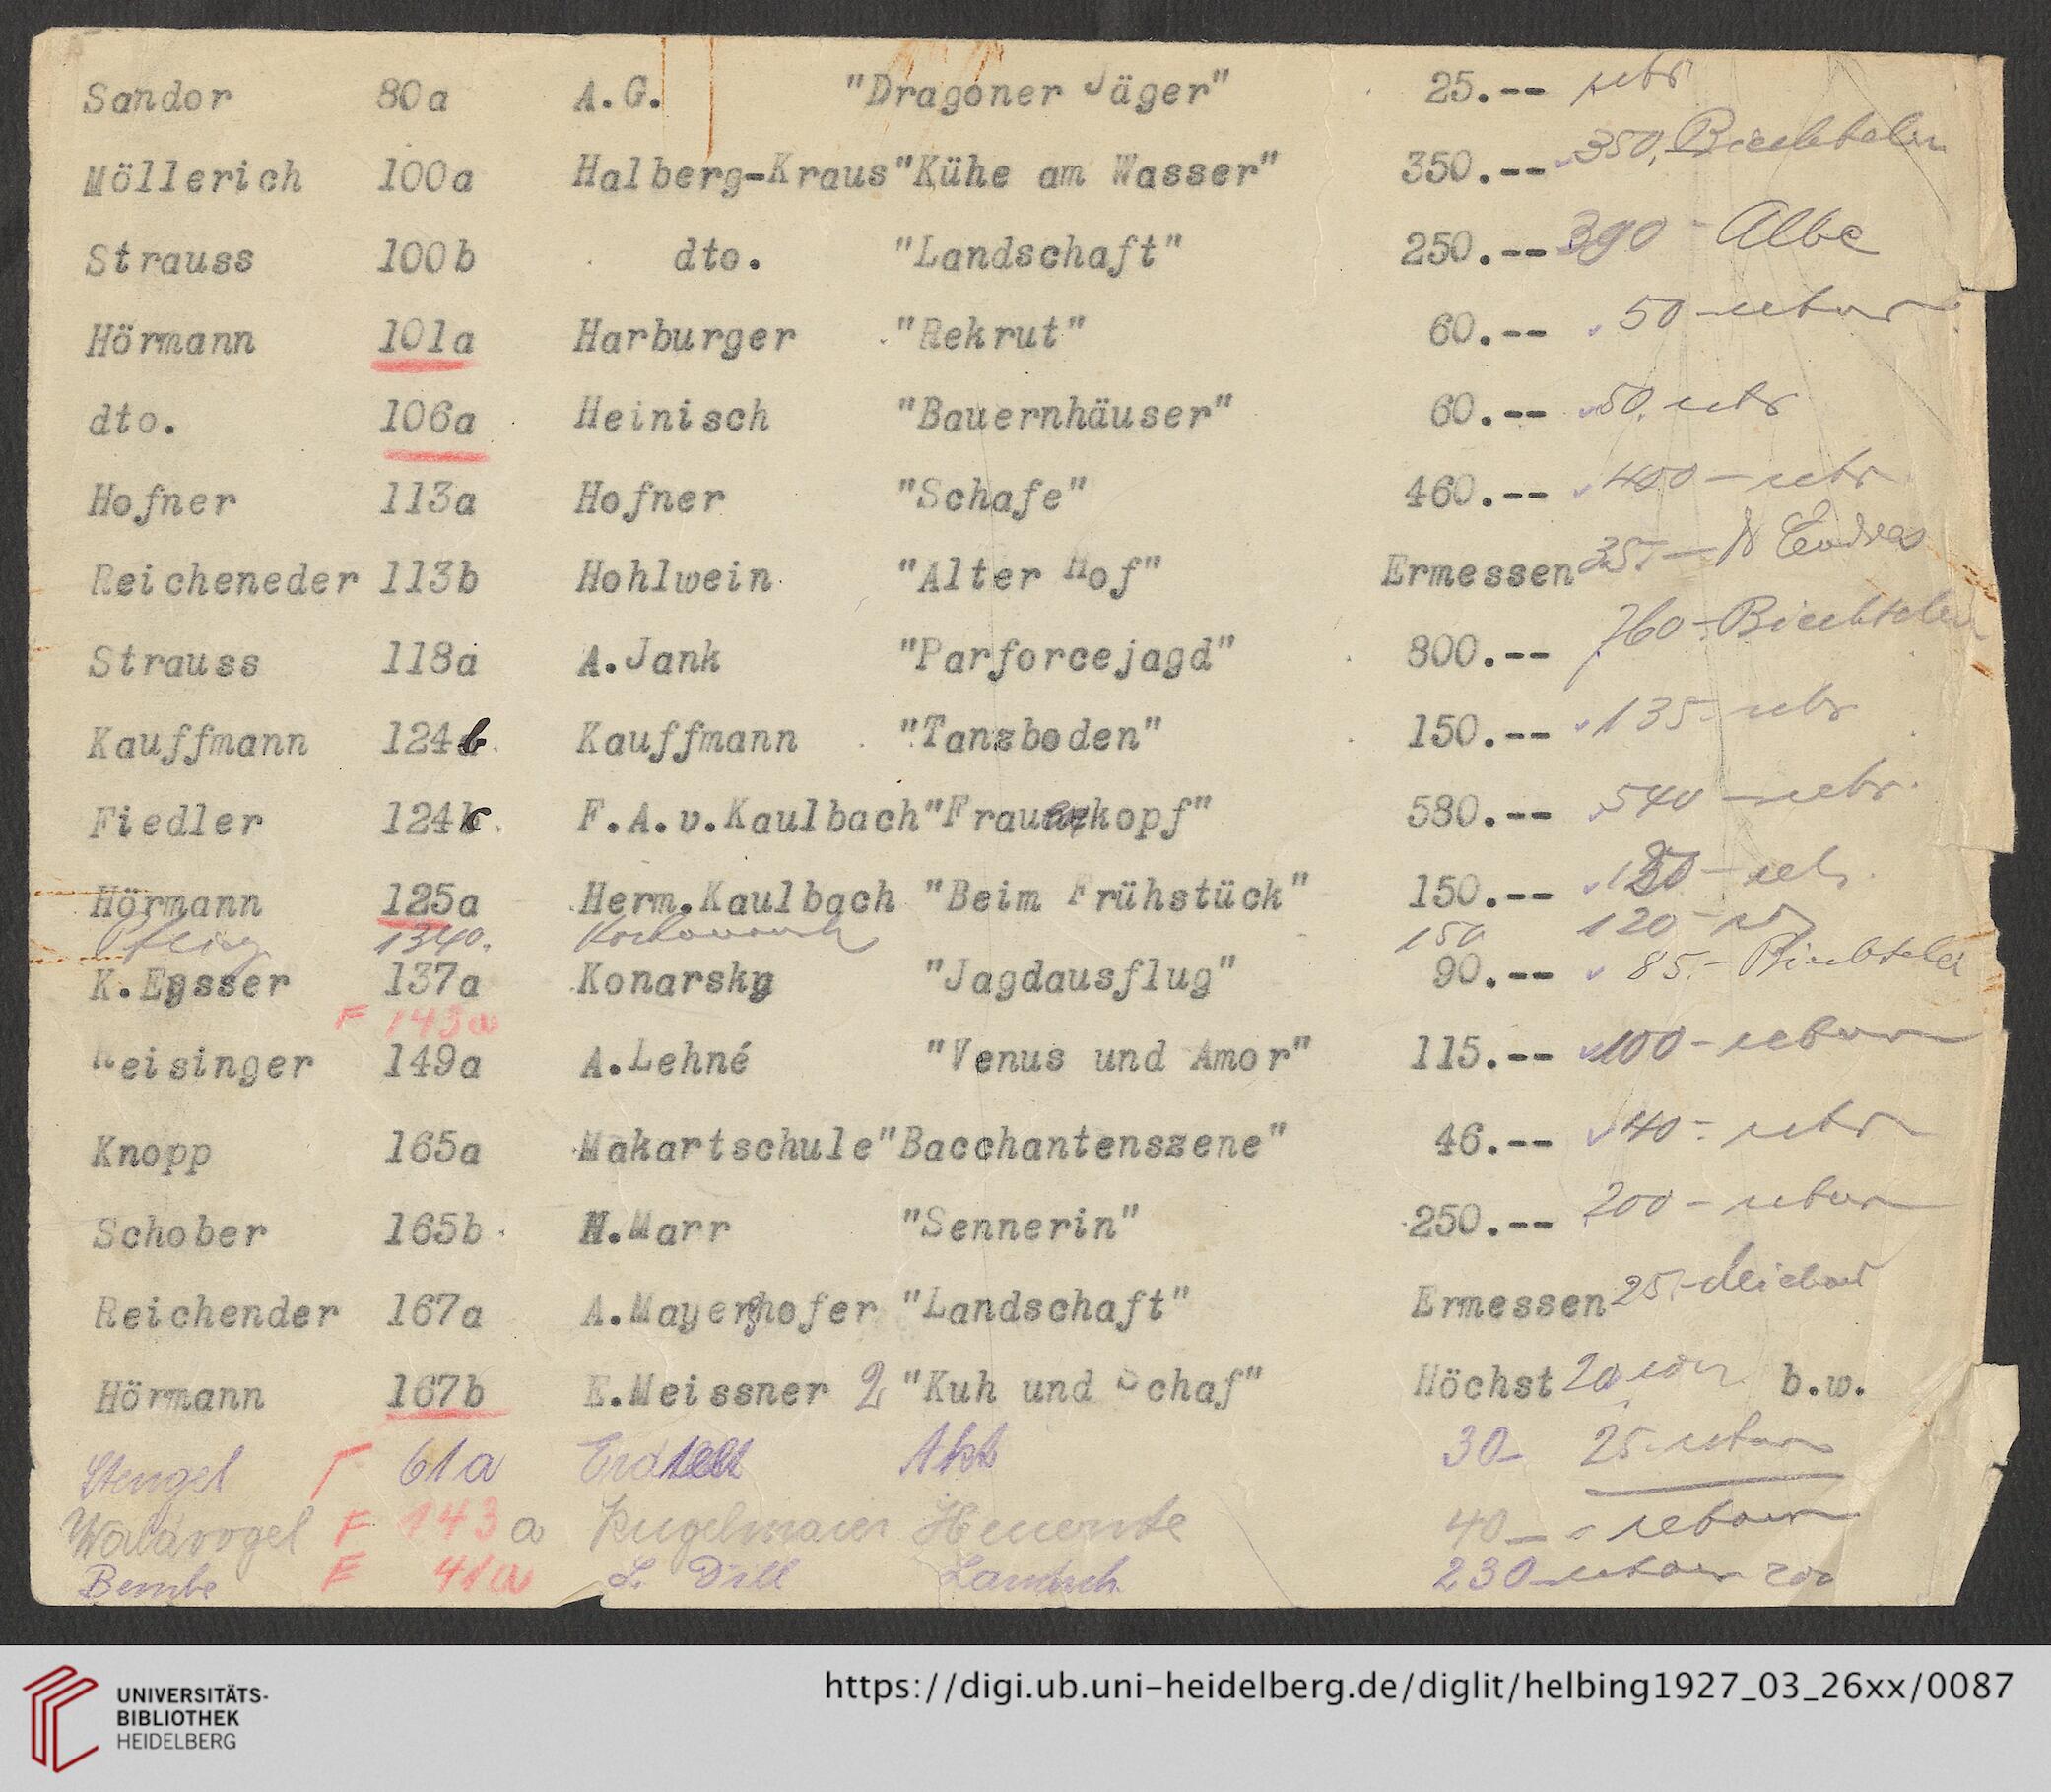 Sandor 80a A.G. "Dragoner Jäger" 25.--
Möllerich 100a Halberg-Kraus "Kühe am Wasser" 350.-- 350,
Strauss 100b dto. "Landschaft" 250.-- 390 - Albe
Hörmann 101a Harburger "Rekrut" 60.-- 50 -
dto. 106a Heinisch "Bauernhäuser" 60.-- 50.
Hofner 113a Hofner "Schafe" 460.-- 400 -
Reicheneder 113b Hohlwein "Alter Hof" Ermessen
Strauss 118a A.Jank "Parforcejagd" 800.-- 760 -
Kauffmann 124b. Kauffmann "Tanzboden" 150.-- 135.-
Fiedler 124c. F.A.v.Kaulbach "Frauenkopf" 580.-- 540 -
Hörmann 125a Herm.Kaulbach "Beim Frühstück" 150.--
150 120 -
K.Egsser 137a Konarsky "Jagdausflug" 90.-- 85.-
F 143a
Reisinger 149a A.Lehné "Venus und Amor" 115.-- 100 -
Knopp 165a Makartschule "Bacchantenszene" 46.-- 40 -
Schober 165b H.Marr "Sennerin" 250.-- 200 -
Reichender 167a A.Mayerhofer "Landschaft" Ermessen 25.-
Hörmann 167b E.Meissner 2 "Kuh und Schaf" Höchst 20 b.w.
Stengel 61a Erdtelt Akt 30- 25
Waldvogel F 143a Kugelmaier 40 -
Bembe F 41a L. Dill Landsch. 230 200
UNIVERSITÄTS-
BIBLIOTHEK
HEIDELBERG
https://digi.ub.uni-heidelberg.de/diglit/helbing1927_03_26xx/0087